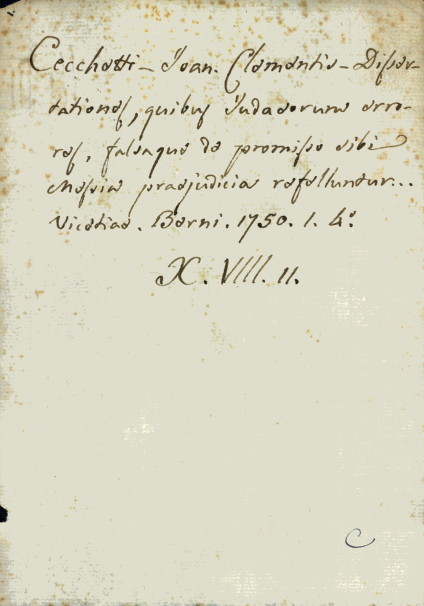 Cecchetti - Joan. Clementis - Disser-
tationes, quibus Judaeorum erro-
res, falsaque de promisso sibi
Messia praejudicia refelluntur...
Vicetiae. Berni. 1750. 1. 4.°
X. VIII. 11.
C